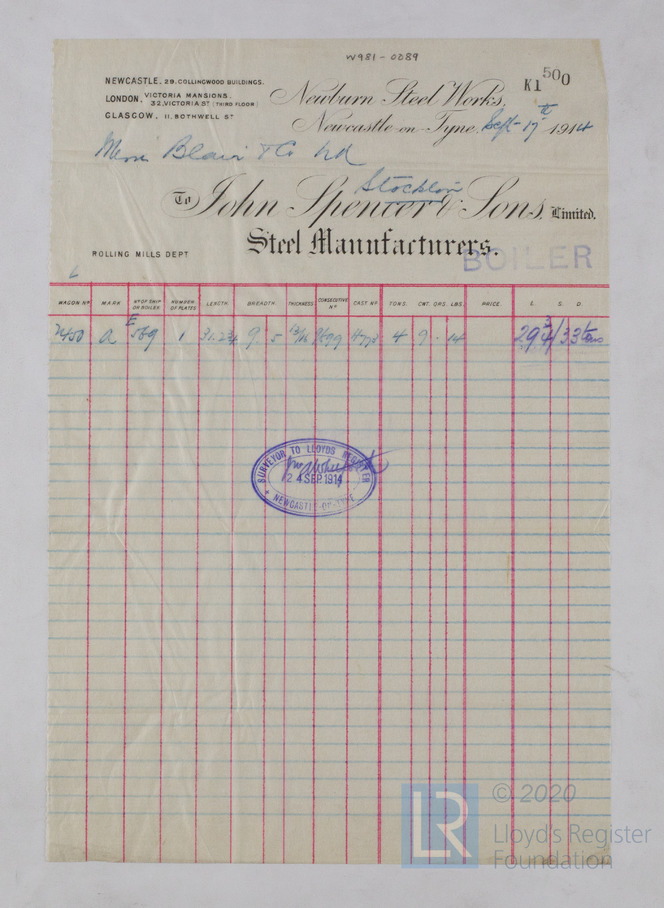 W981 - 0089
NEWCASTLE. 29. COLLINGWOOD BUILDINGS.
LONDON. VICTORIA MANSIONS.
32, VICTORIA ST (THIRD FLOOR)
GLASGOW. 11, BOTHWELL ST
K1500
Newburn Steel Works,
Newcastle-on-Tyne, Sept 17th 1914
Messrs Blair & Co Ltd
Stockton
To John Spencer & Sons, Limited.
Steel Manufacturers.
ROLLING MILLS DEPT
BOILER
WAGON No MARK No OF SHIP OR BOILER NUMBER OF PLATES LENGTH BREADTH THICKNESS CONSECUTIVE No CAST No TONS. CWT. QRS. LBS. PRICE. £. S. D.
E 569 1 9 5 13/16 4 9 - 14 29 3/4 / 33 tons
SURVEYOR TO LLOYDS REGISTER
24 SEP. 1914
NEWCASTLE-ON-TYNE
LR
© 2020
Lloyd's Register
Foundation